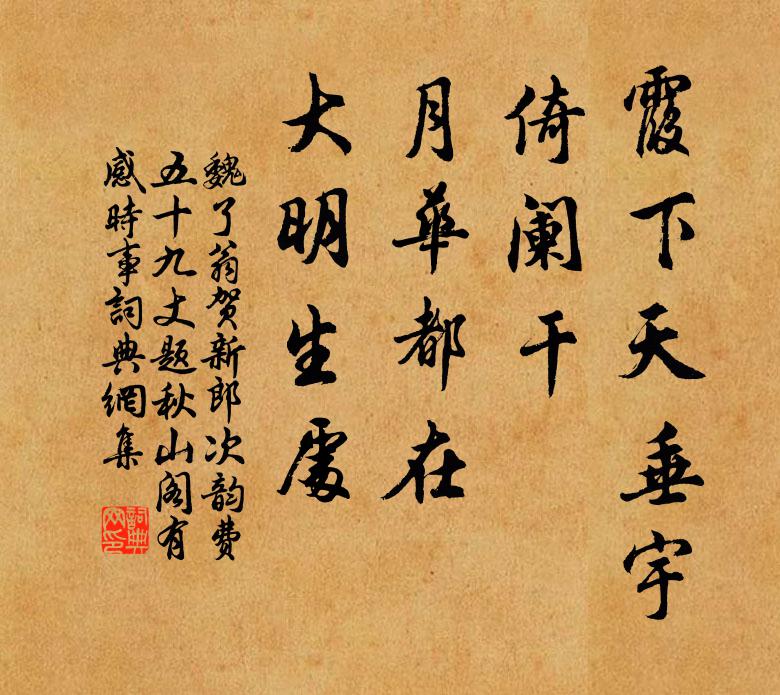 霞下天垂宇
倚阑干
月华都在
大明生处
魏了翁贺新郎次韵费
五十九丈题秋山阁有
感時事詞典網集
詞典網印